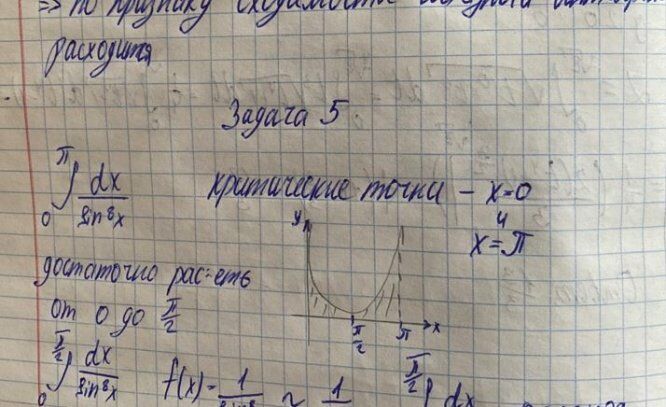 ⇒ по признаку сходимости
расходится
Задача 5
∫₀^π dx/sin⁸x критические точки – x=0
и
x=π
y
достаточно рас-еть
от 0 до π/2
π/2 π x
∫₀^(π/2) dx/sin⁸x f(x) = 1/sin⁸ ~ 1 π/2 ∫ dx